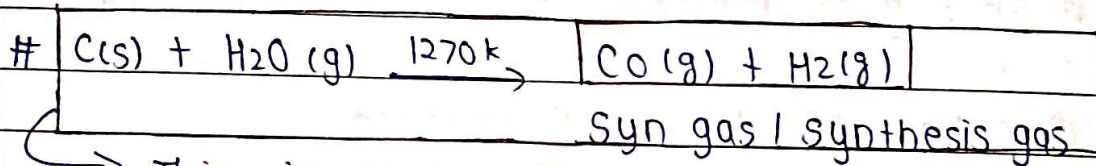 # C(s) + H2O (g) 1270k → CO (g) + H2(g)
Syn gas / synthesis gas